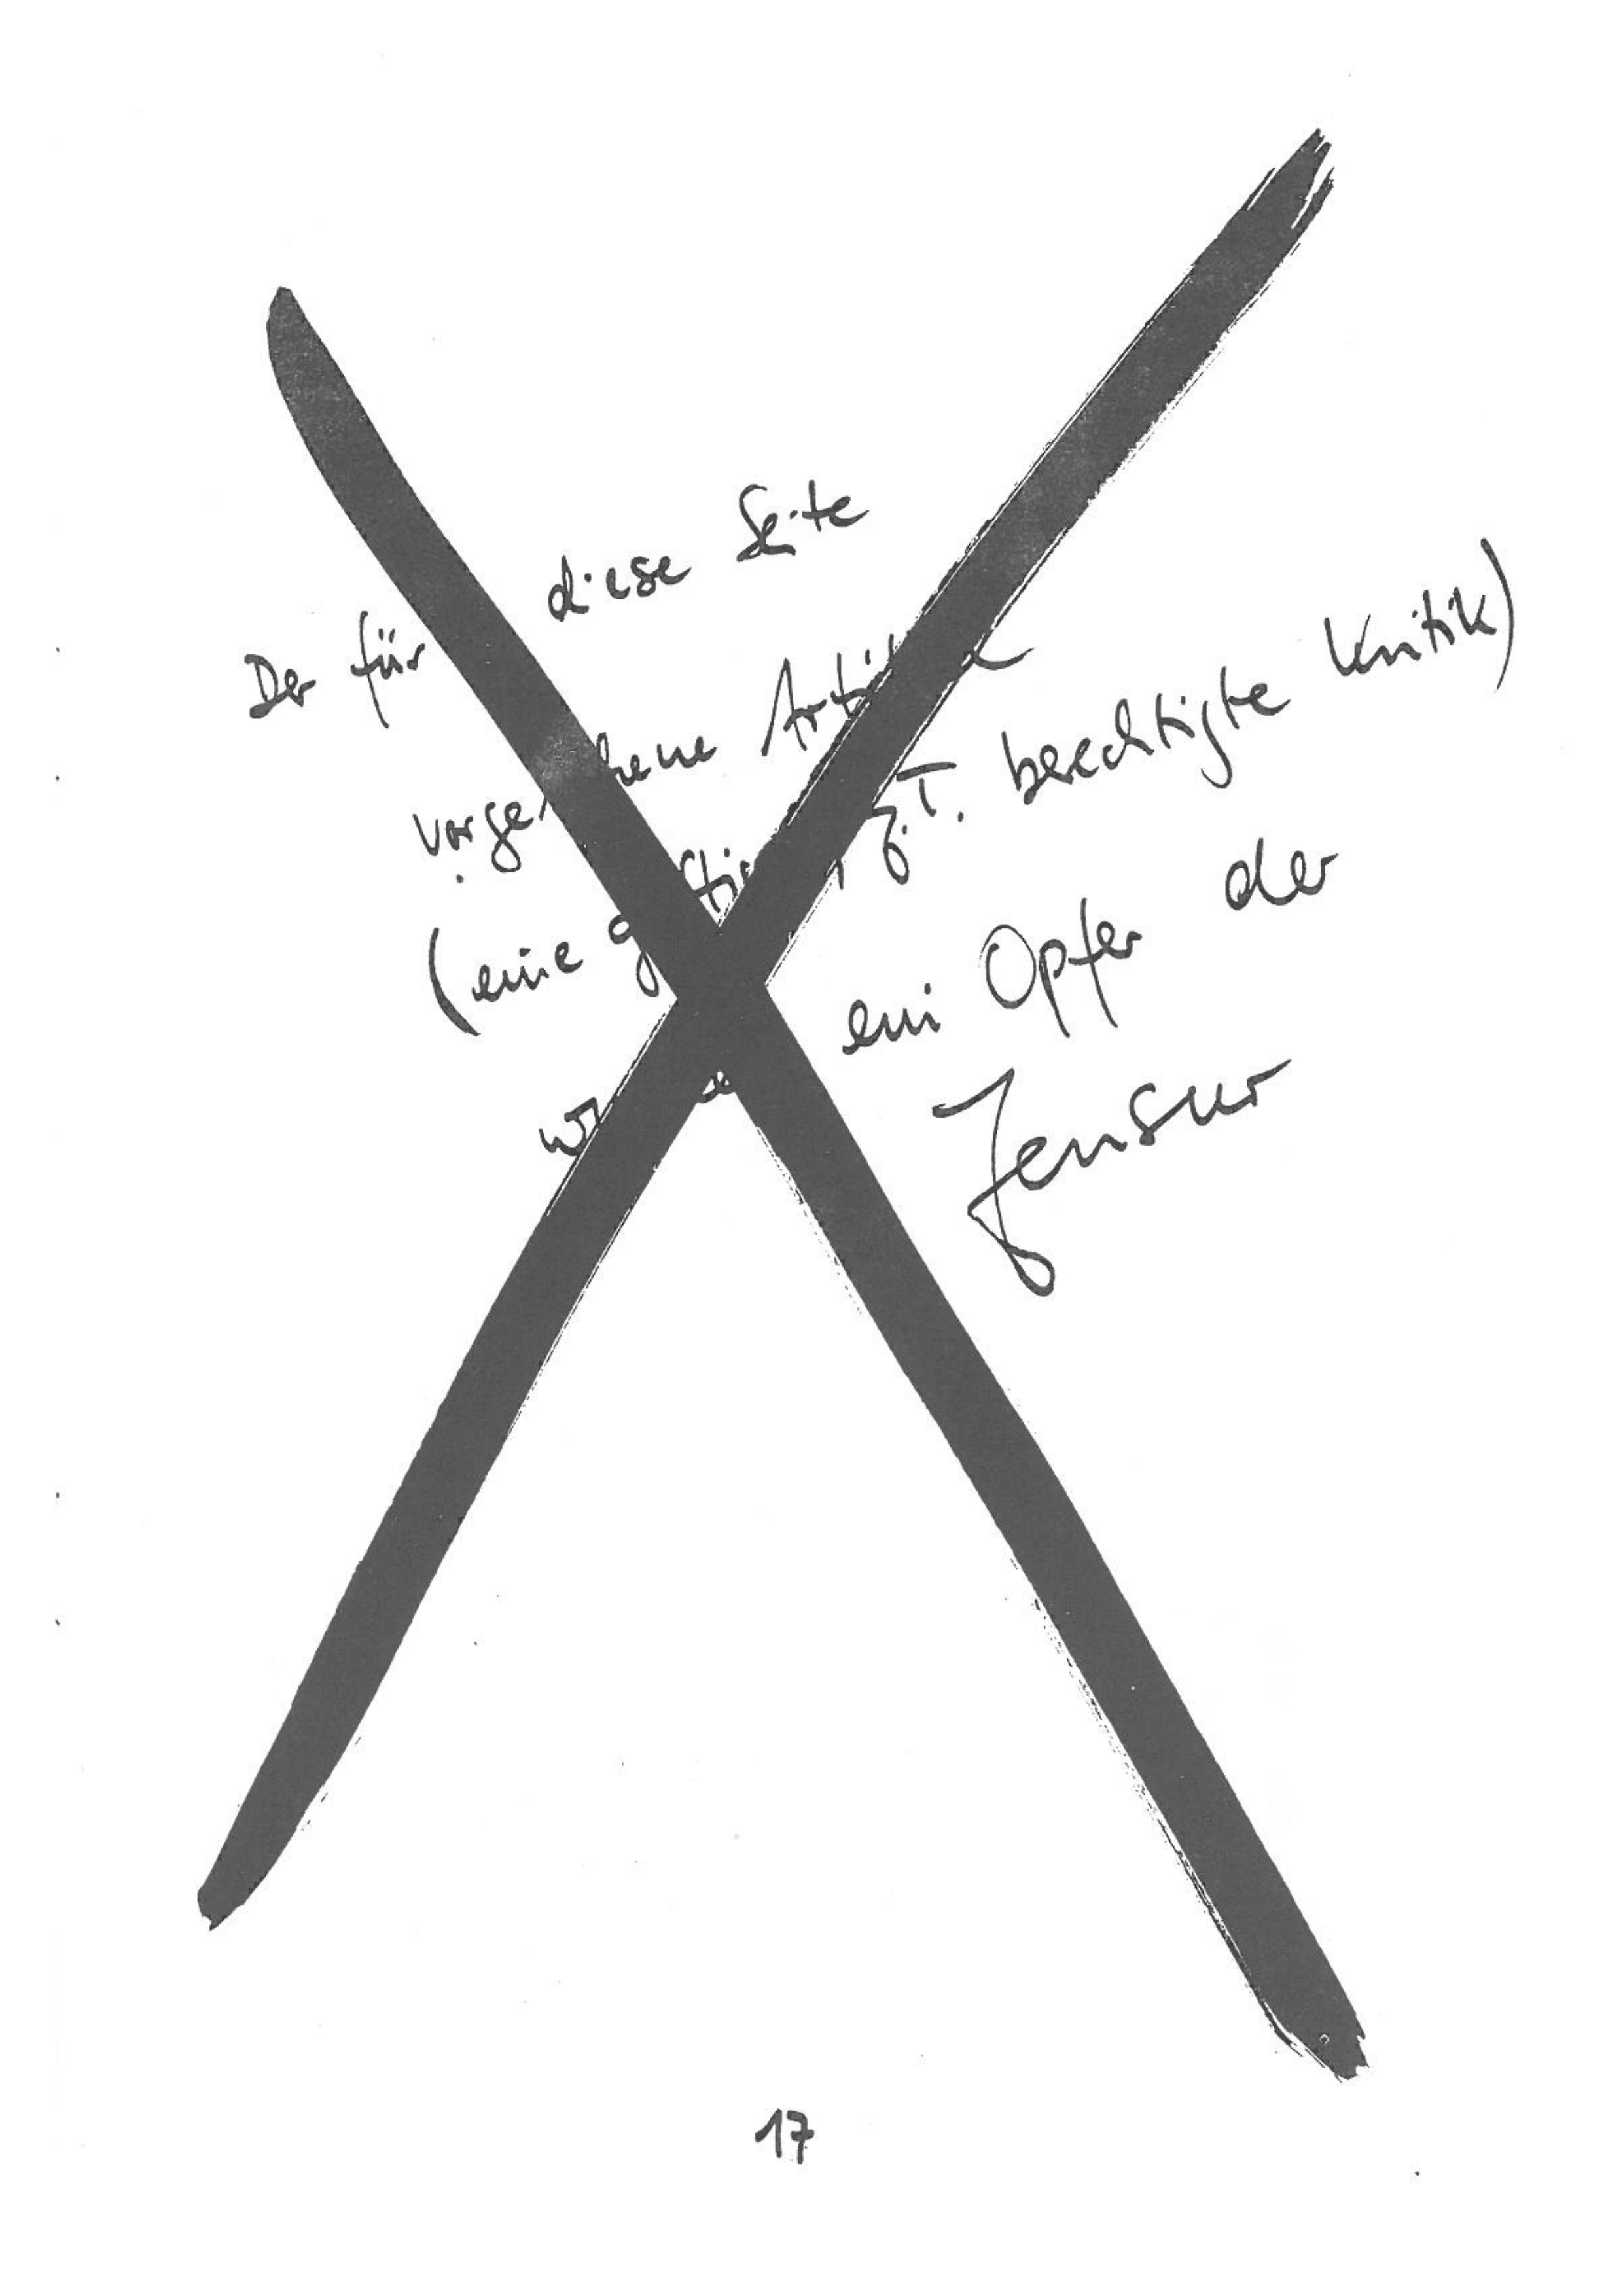 Der für diese Seite
vorgesehene Artikel
(eine z.T. berechtigte Kritik)
wurde ein Opfer der
Zensur
17